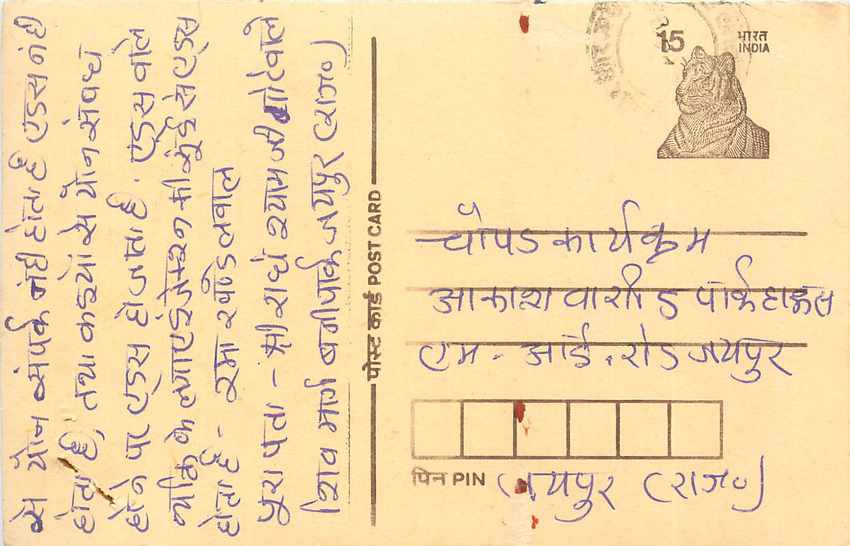 से यौन संपर्क नही होता है एड्स नही
होता है, तथा कइयो से यौन संबंध
होने पर एड्स हो जाता है. एड्स वाले
व्यक्ति के लगाए इंजेक्शन की सूई से एड्स
होता है - रमा खण्डेलवाल
पुरा पता - श्री राधे श्याम जी गोटेवाले
शिव मार्ग बनीपार्क जयपुर (राज०)
पोस्ट कार्ड POST CARD
15
भारत
INDIA
चौपड कार्यक्रम
आकाशवाणी 5 पार्क हाऊस
एम - आई . रोड जयपुर
पिन PIN
जयपुर (राज०)